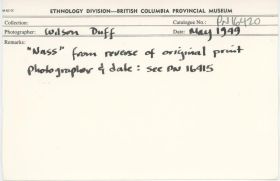 ETHNOLOGY DIVISION—BRITISH COLUMBIA PROVINCIAL MUSEUM
Collection: Catalogue No.: PN 16420
Photographer: Wilson Duff Date: May 1949
Remarks:
"Nass" from reverse of original print
photographer & date: see PN 16415